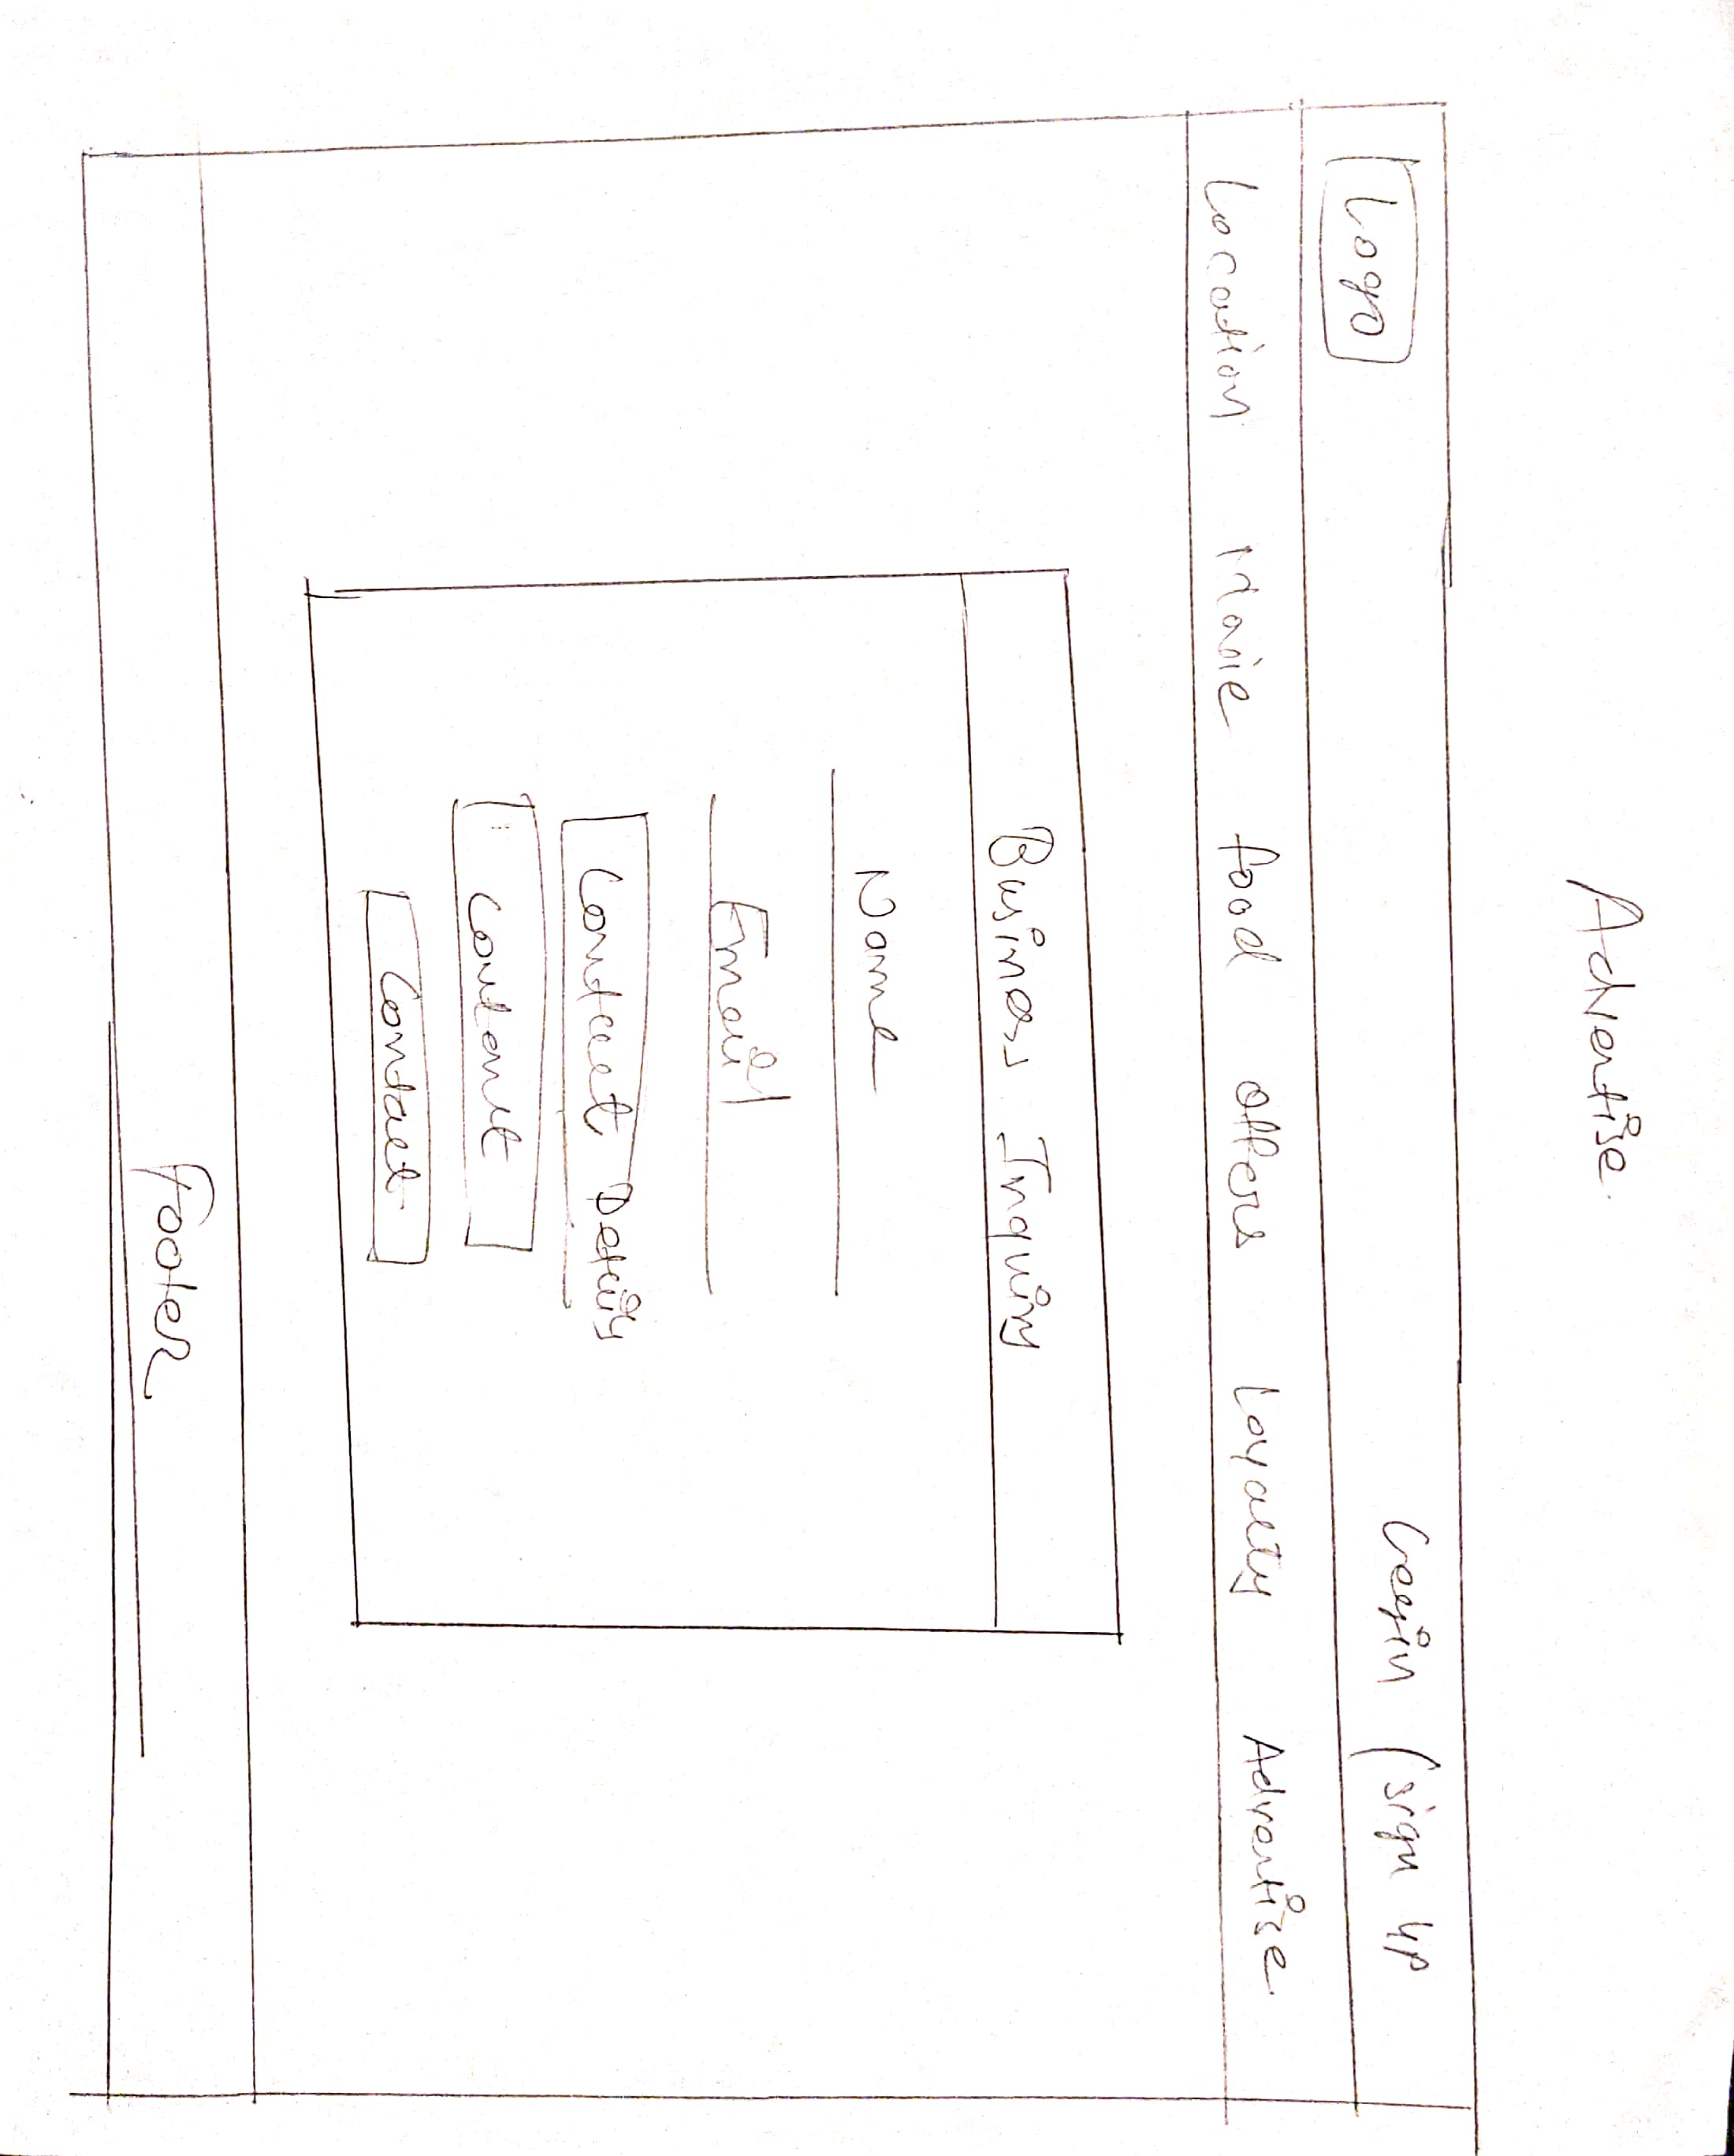 Advertise.
Logo
Login / sign up
Location Movie food offers Loyalty Advertise
Business Inquiry
Name
Email
Contact Details
Content
Contact
Footer